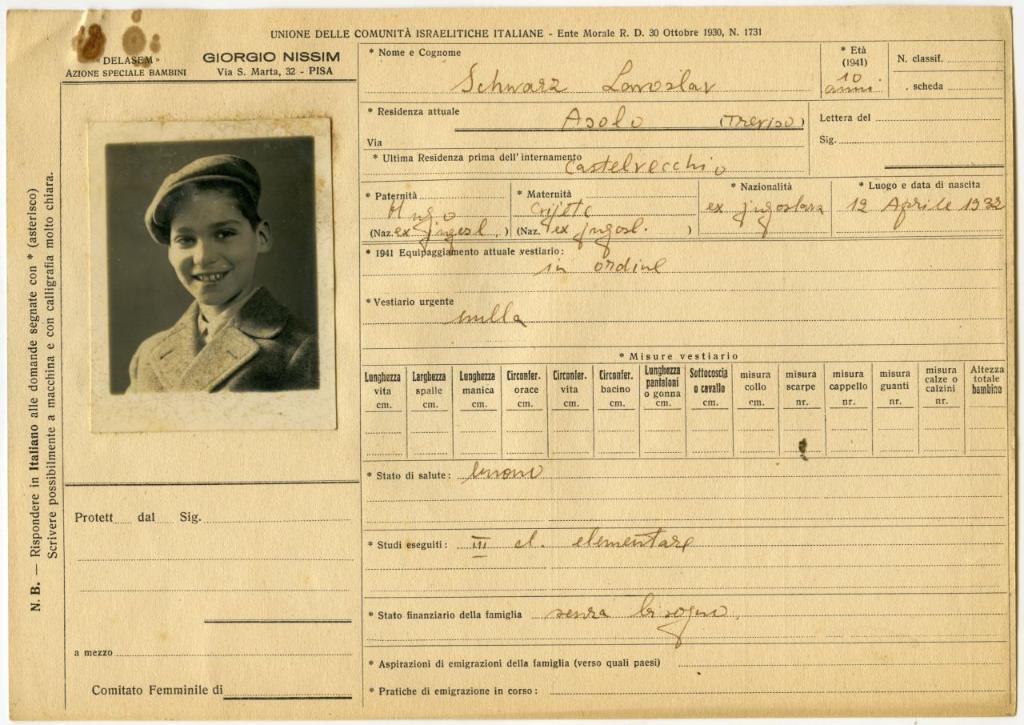 UNIONE DELLE COMUNITÀ ISRAELITICHE ITALIANE - Ente Morale R. D. 30 Ottobre 1930, N. 1731
"DELASEM"
AZIONE SPECIALE BAMBINI
GIORGIO NISSIM
Via S. Marta, 32 - PISA
* Nome e Cognome
Schwarz Lavoslav
* Età (1941)
10 anni
N. classif.
. scheda
* Residenza attuale
Asolo (Treviso)
Via
Lettera del
Sig.
* Ultima Residenza prima dell'internamento
Castelvecchio
* Paternità
Hugo
(Naz. ex jugosl. )
* Maternità
(Naz. ex jugosl. )
* Nazionalità
ex jugoslava
* Luogo e data di nascita
12 Aprile 1932
* 1941 Equipaggiamento attuale vestiario:
in ordine
* Vestiario urgente
nulla
* Misure vestiario
Lunghezza vita cm.
Larghezza spalle cm.
Lunghezza manica cm.
Circonfer. orace cm.
Circonfer. vita cm.
Circonfer. bacino cm.
Lunghezza pantaloni o gonna cm.
Sottocoscia o cavallo cm.
misura collo cm.
misura scarpe nr.
misura cappello nr.
misura guanti nr.
misura calze o calzini nr.
Altezza totale bambino
* Stato di salute: buono
* Studi eseguiti: III cl. elementare
* Stato finanziario della famiglia senza bisogno
* Aspirazioni di emigrazioni della famiglia (verso quali paesi)
* Pratiche di emigrazione in corso:
Protett dal Sig.
a mezzo
Comitato Femminile di
N. B. — Rispondere in Italiano alle domande segnate con * (asterisco)
Scrivere possibilmente a macchina e con calligrafia molto chiara.